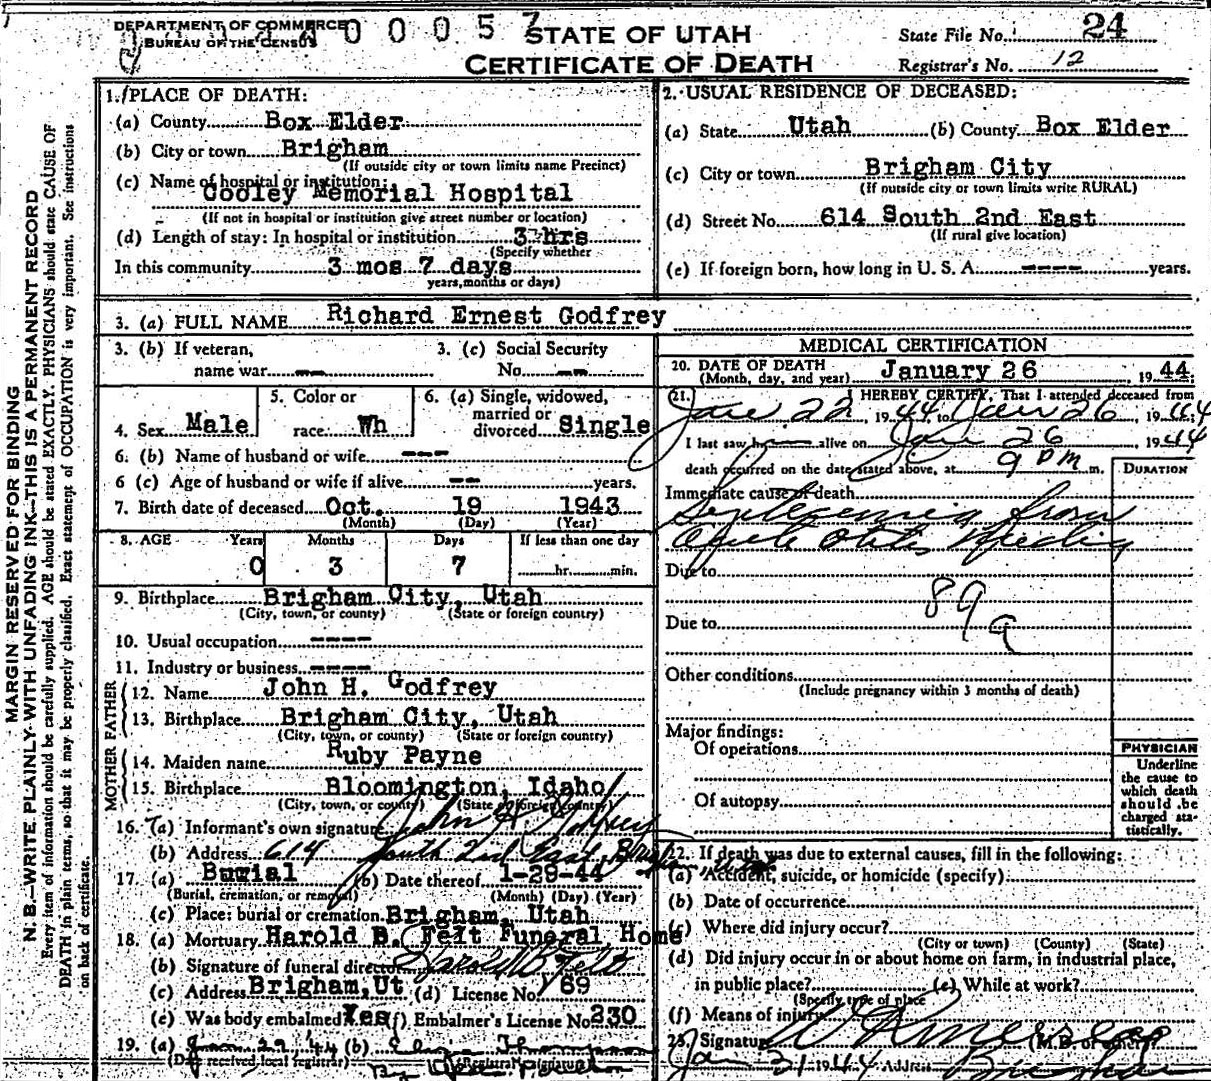 DEPARTMENT OF COMMERCE
BUREAU OF THE CENSUS
0 0 0 5 7
STATE OF UTAH
CERTIFICATE OF DEATH
State File No. 24
Registrar's No. 12
MARGIN RESERVED FOR BINDING
N. B.—WRITE PLAINLY WITH UNFADING INK—THIS IS A PERMANENT RECORD
Every item of information should be carefully supplied. AGE should be stated EXACTLY. PHYSICIANS should state CAUSE OF
DEATH in plain terms, so that it may be properly classified. Exact statement of OCCUPATION is very important. See instructions
on back of certificate.
1. PLACE OF DEATH:
(a) County Box Elder
(b) City or town Brigham
(If outside city or town limits name Precinct)
(c) Name of hospital or institution:
Cooley Memorial Hospital
(If not in hospital or institution give street number or location)
(d) Length of stay: In hospital or institution 3 hrs
(Specify whether
In this community 3 mos 7 days
years, months or days)
2. USUAL RESIDENCE OF DECEASED:
(a) State Utah (b) County Box Elder
(c) City or town Brigham City
(If outside city or town limits write RURAL)
(d) Street No. 614 South 2nd East
(If rural give location)
(e) If foreign born, how long in U. S. A. ---- years.
3. (a) FULL NAME Richard Ernest Godfrey
3. (b) If veteran,
name war --
3. (c) Social Security
No. --
4. Sex Male
5. Color or
race Wh
6. (a) Single, widowed,
married or
divorced Single
6. (b) Name of husband or wife ---
6 (c) Age of husband or wife if alive -- years.
7. Birth date of deceased Oct. 19 1943
(Month) (Day) (Year)
8. AGE Years Months Days If less than one day
0 3 7 hr. min.
9. Birthplace Brigham City, Utah
(City, town, or county) (State or foreign country)
10. Usual occupation ----
11. Industry or business ----
FATHER
12. Name John H. Godfrey
13. Birthplace Brigham City, Utah
(City, town, or county) (State or foreign country)
MOTHER
14. Maiden name Ruby Payne
15. Birthplace Bloomington, Idaho
(City, town, or county) (State or foreign country)
16. (a) Informant's own signature John H Godfrey
(b) Address 614 South 2nd East, Brigham
17. (a) Burial (b) Date thereof 1-29-44
(Burial, cremation, or removal) (Month) (Day) (Year)
(c) Place: burial or cremation Brigham, Utah
18. (a) Mortuary Harold B. Felt Funeral Home
(b) Signature of funeral director Harold B Felt
(c) Address Brigham, Ut (d) License No. 69
(e) Was body embalmed Yes (f) Embalmer's License No. 230
19. (a) Jan 29 44 (b)
(Date received local registrar) (Registrar's signature)
By
MEDICAL CERTIFICATION
20. DATE OF DEATH
(Month, day, and year) January 26 1944
21. I HEREBY CERTIFY, That I attended deceased from
Jan 22 1944 to Jan 26 1944
I last saw h alive on Jan 26 1944
death occurred on the date stated above, at 9 PM m.
DURATION
Immediate cause of death
Septicemia from
Acute Otitis Media
Due to
89a
Due to
Other conditions
(Include pregnancy within 3 months of death)
Major findings:
Of operations
Of autopsy
PHYSICIAN
Underline
the cause to
which death
should be
charged sta-
tistically.
22. If death was due to external causes, fill in the following:
(a) Accident, suicide, or homicide (specify)
(b) Date of occurrence
(c) Where did injury occur?
(City or town) (County) (State)
(d) Did injury occur in or about home on farm, in industrial place,
in public place? (e) While at work?
(Specify type of place
(f) Means of injury
23. Signature
(M.D. or other)
Jan 31 1944 Address Brigham